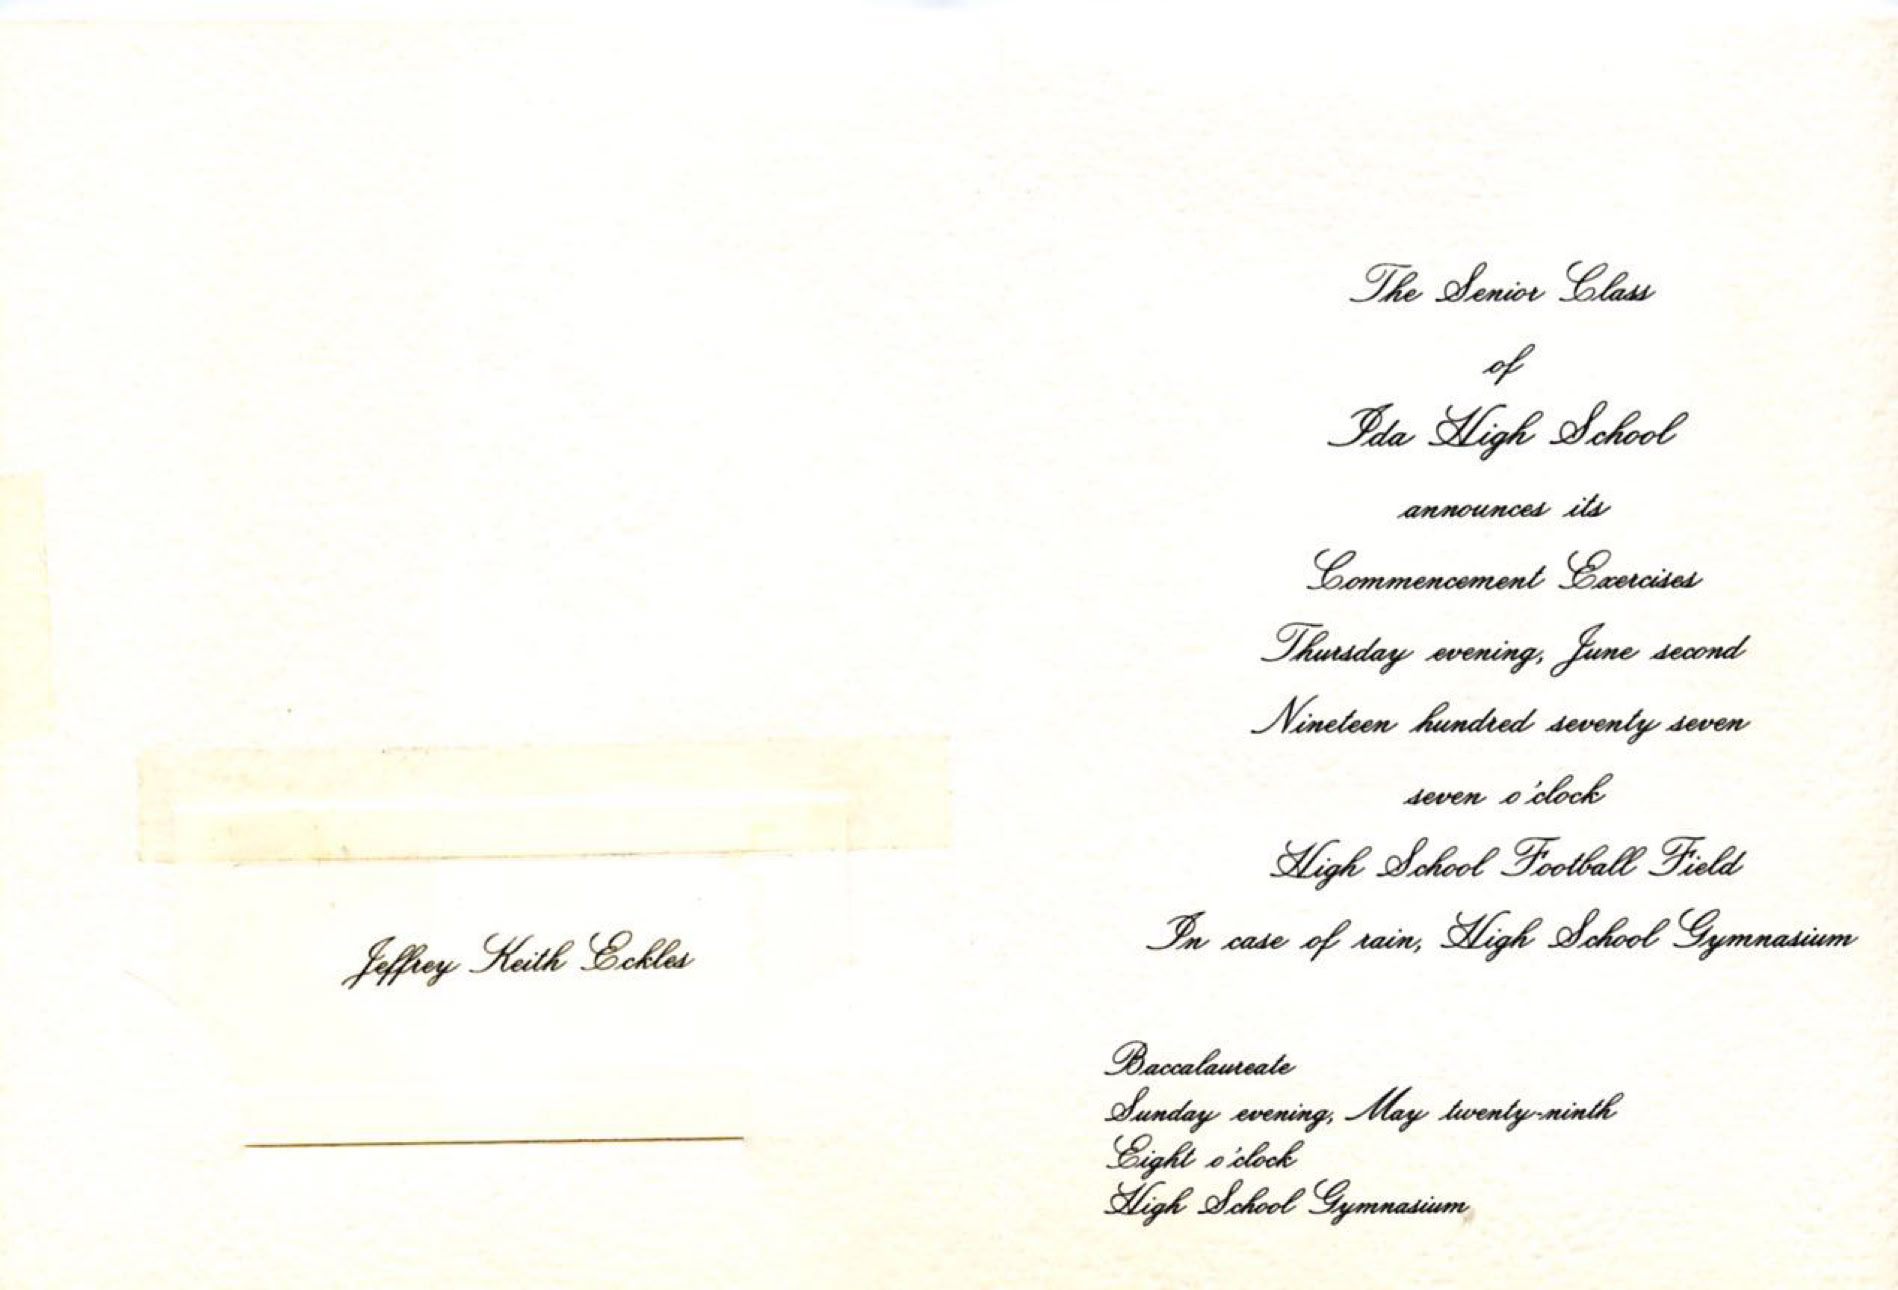 Jeffrey Keith Eckles
The Senior Class
of
Ida High School
announces its
Commencement Exercises
Thursday evening, June second
Nineteen hundred seventy seven
seven o'clock
High School Football Field
In case of rain, High School Gymnasium
Baccalaureate
Sunday evening, May twenty-ninth
Eight o'clock
High School Gymnasium